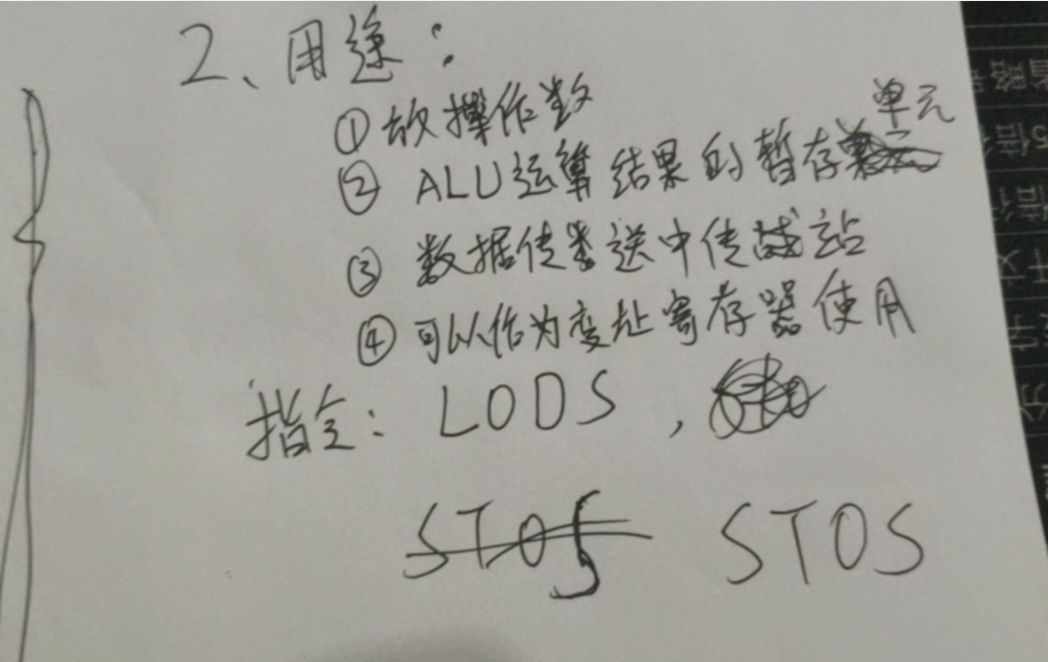 2、用途：
①放操作数
②ALU运算结果的暂存单元
③数据传送中传站
④可以作为变址寄存器使用
指令：LODS，
STOS STOS